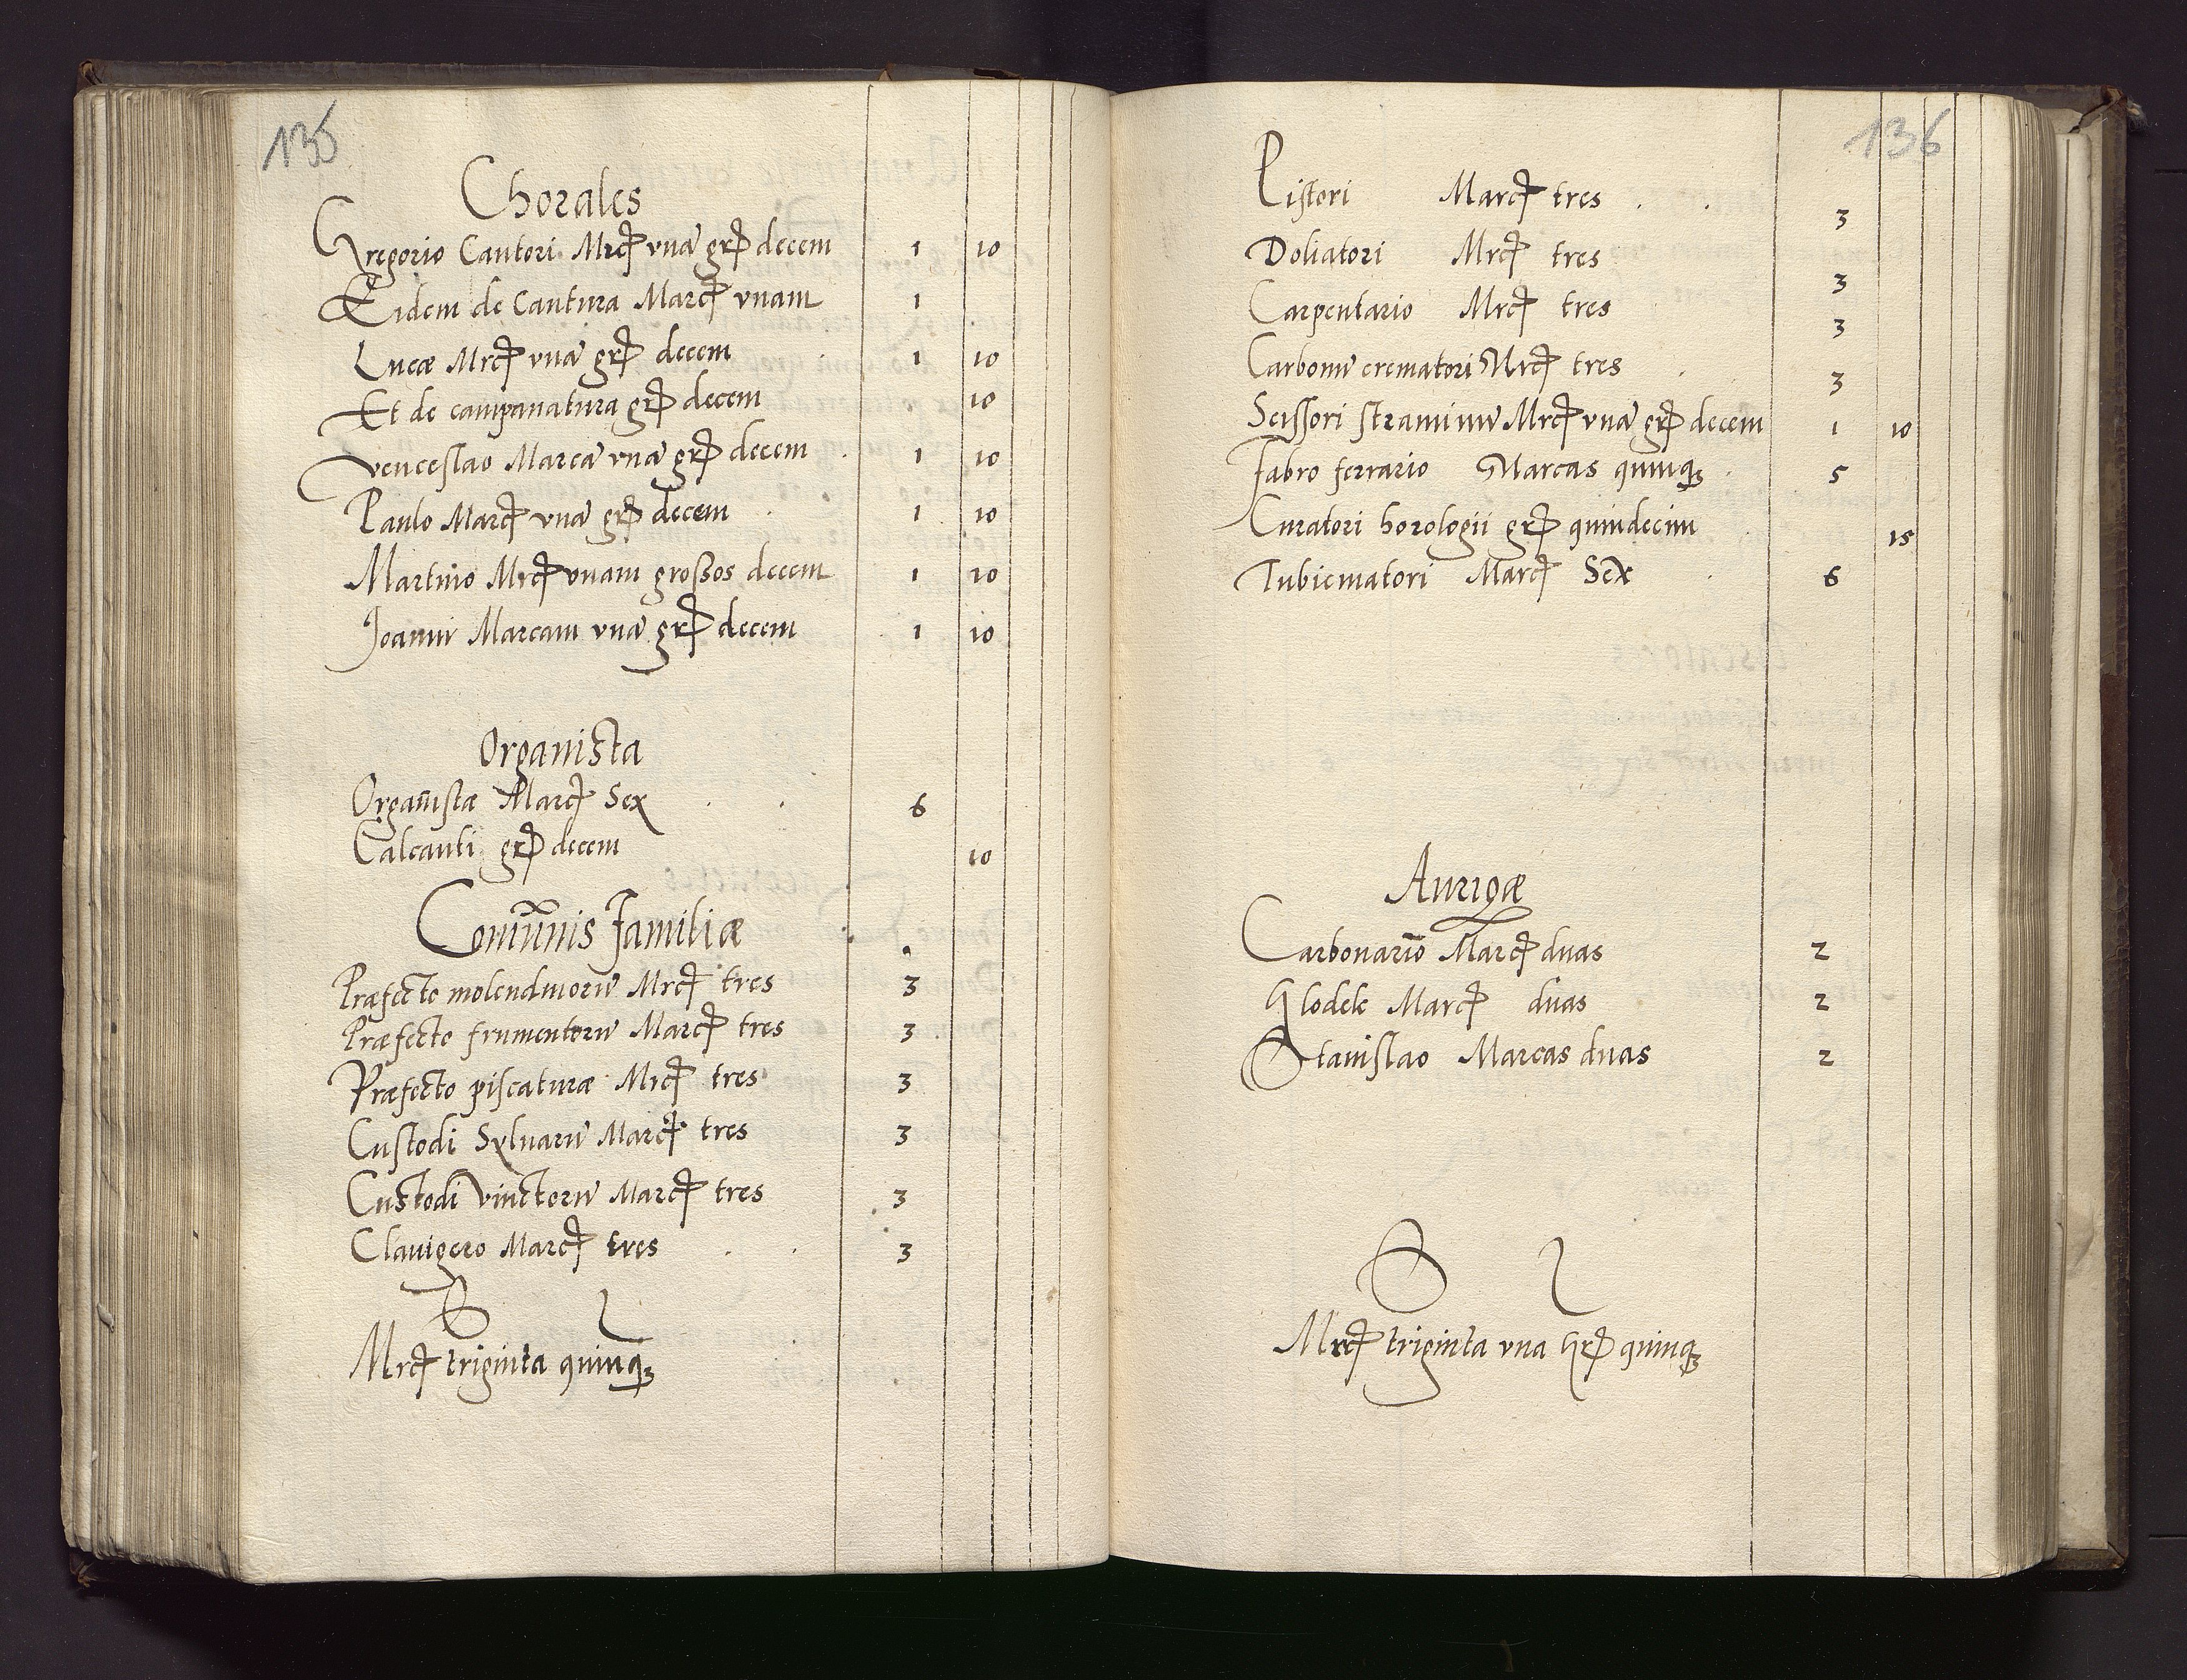 135
Chorales
Gregorio Cantori Mrcꝭ vnā grꝭ decem 1 10
Eidem de Cantura Marcꝭ vnam 1
Lucæ Mrcꝭ vnā grꝭ decem 1 10
Et de campanatura grꝭ decem 10
Venceslao Marcā vnā grꝭ decem 1 10
Paulo Marcꝭ vnā grꝭ decem 1 10
Martino Mrcꝭ vnam grossos decem 1 10
Joanni Marcam vnā grꝭ decem 1 10
Organista
Organistæ Marcꝭ Sex 6
Calcanti grꝭ decem 10
Com̄unis Familiæ
Præfecto molendinorū Mrcꝭ tres 3
Præfecto frumentorū Marcꝭ tres 3
Præfecto piscaturæ Mrcꝭ tres 3
Custodi Sylvarū Marcꝭ tres 3
Custodi vinctorū Marcꝭ tres 3
Clauigero Marcꝭ tres 3
Mrcꝭ triginta quinqꝫ
136
Pistori Marcꝭ tres 3
Doliatori Mrcꝭ tres 3
Carpentario Mrcꝭ tres 3
Carbonū crematori Mrcꝭ tres 3
Scissori straminū Mrcꝭ vnā grꝭ decem 1 10
Fabro ferrario Marcas quinqꝫ 5
Curatori horologii grꝭ quindecim 15
Tubicinatori Marcꝭ Sex 6
Aurigæ
Carbonario Marcꝭ duas 2
Hlodek Marcꝭ duas 2
Stanislao Marcas duas 2
Mrcꝭ triginta vna grꝭ quinqꝫ